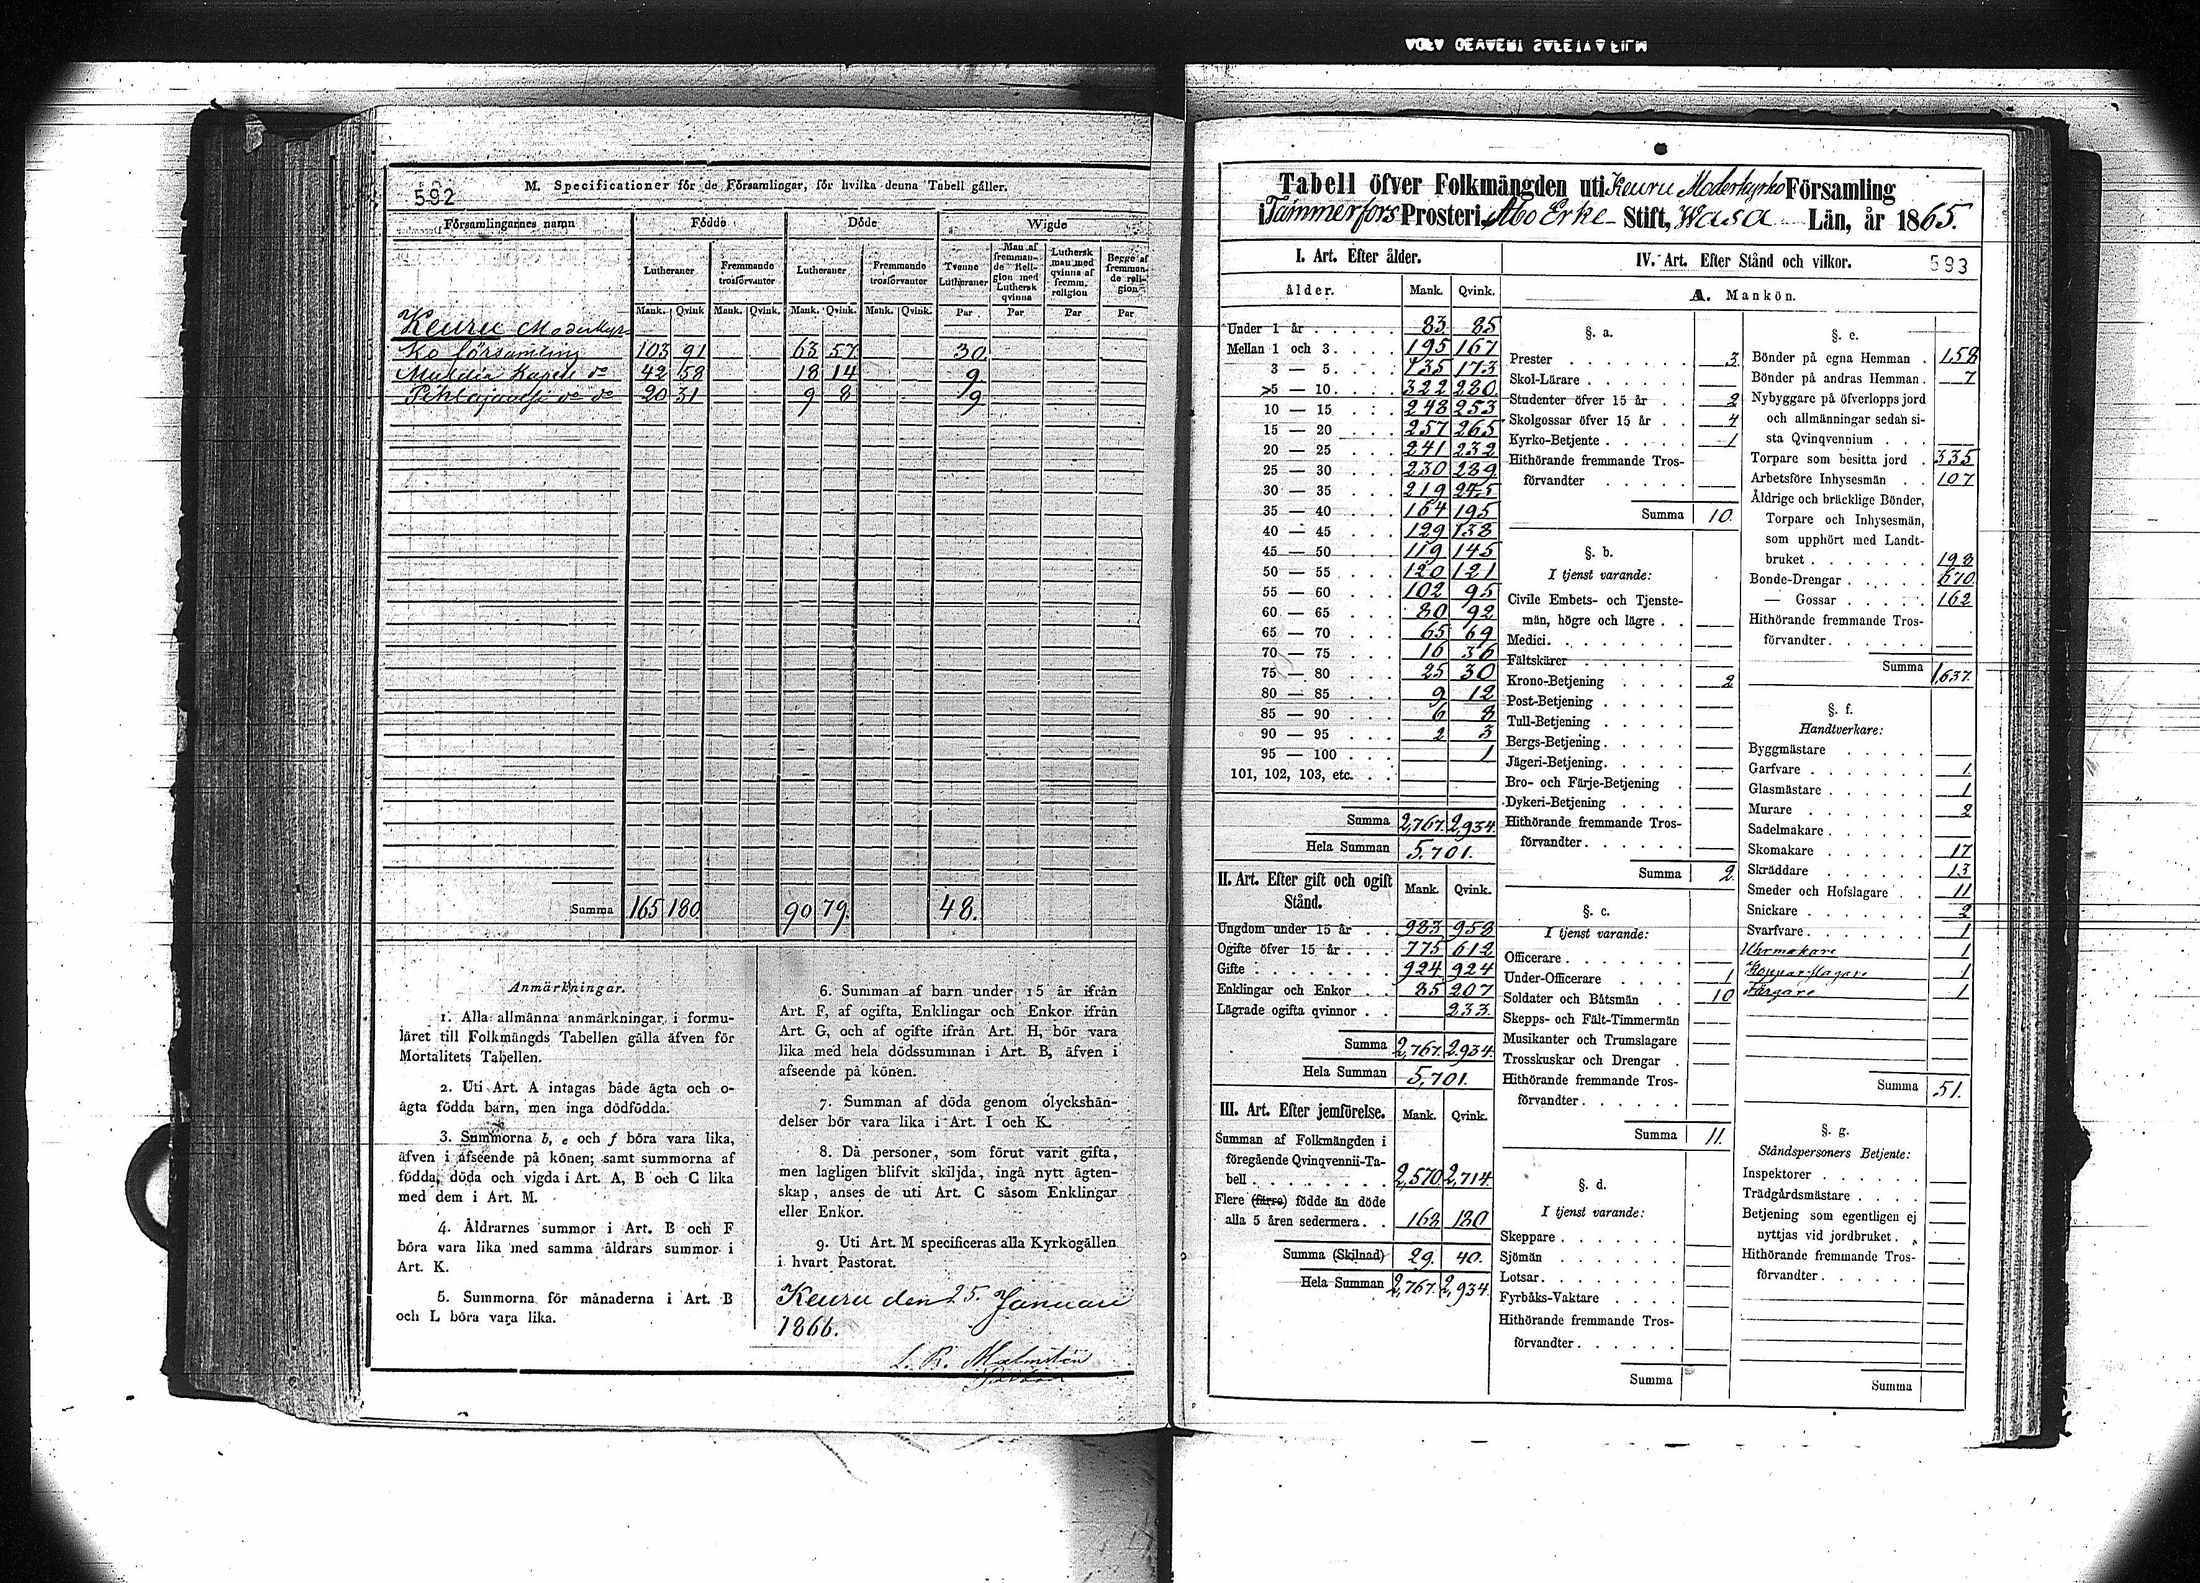 592
M. Specificationer för de Församlingar, för hvilka denna Tabell gäller.
Församlingarnes namn Födde Döde Wigde
Lutheraner Fremmande trosförvantor Lutheraner Fremmande trosförvantor Tvenne Lutheraner Man af fremmande Religion med Luthersk qvinna Luthersk man med qvinna af fremm. religion Begge af fremmande religion
Mank. Qvink Mank. Qvink. Mank. Qvink. Mank. Qvink. Par Par Par Par
Keuru Moderkyr-
ko församling 103 91 63 57 30
Multia Kapell do 42 58 18 14 9
Pihlajavesi do do 20 31 9 8 9
Summa 165 180 90 79. 48.
Anmärkningar.
1. Alla allmänna anmärkningar i formu-
läret till Folkmängds Tabellen gälla äfven för
Mortalitets Tabellen.
2. Uti Art. A intagas både ägta och o-
ägta födda barn, men inga dödfödda.
3. Summorna b, e och f böra vara lika,
äfven i afseende på könen; samt summorna af
födda, döda och vigda i Art. A, B och C lika
med dem i Art. M.
4. Åldrarnes summor i Art. B och F
böra vara lika med samma åldrars summor i
Art. K.
5. Summorna för månaderna i Art. B
och L böra vara lika.
6. Summan af barn under 15 år ifrån
Art. F, af ogifta, Enklingar och Enkor ifrån
Art. G, och af ogifte ifrån Art. H, bör vara
lika med hela dödssumman i Art. B, äfven i
afseende på könen.
7. Summan af döda genom olyckshän-
delser bör vara lika i Art. I och K.
8. Då personer, som förut varit gifta,
men lagligen blifvit skiljda, ingå nytt ägten-
skap, anses de uti Art. C såsom Enklingar
eller Enkor.
9. Uti Art. M specificeras alla Kyrkogällen
i hvart Pastorat.
Keuru den 25. Januari
1866.
L. R. Malmstén
Tabell öfver Folkmängden uti Keuru Moderkyrko Församling
i Tammerfors Prosteri, Åbo Erke- Stift, Wasa Län, år 1865.
593
I. Art. Efter ålder.
ålder. Mank. Qvink.
Under 1 år 83 85
Mellan 1 och 3 195 167
3 — 5 135 173
5 — 10 322 280
10 — 15 248 253
15 — 20 257 265
20 — 25 241 232
25 — 30 230 289
30 — 35 219 245
35 — 40 164 195
40 — 45 129 138
45 — 50 119 145
50 — 55 120 121
55 — 60 102 95
60 — 65 80 92
65 — 70 65 69
70 — 75 16 36
75 — 80 25 30
80 — 85 9 12
85 — 90 6 8
90 — 95 2 3
95 — 100 1
101, 102, 103, etc.
Summa 2,767. 2,934.
Hela Summan 5,701.
II. Art. Efter gift och ogift Stånd. Mank. Qvink.
Ungdom under 15 år 983 958
Ogifte öfver 15 år 775 612
Gifte 924 924
Enklingar och Enkor 85 207
Lägrade ogifta qvinnor 233.
Summa 2,767. 2,934.
Hela Summan 5,701.
III. Art. Efter jemförelse. Mank. Qvink.
Summan af Folkmängden i
föregående Qvinqvennii-Ta-
bell 2,570 2,714
Flere (färre) födde än döde
alla 5 åren sedermera 168 180
Summa (Skilnad) 29. 40.
Hela Summan 2,767. 2,934.
IV. Art. Efter Stånd och vilkor.
A. Mankön.
§. a.
Prester 3
Skol-Lärare
Studenter öfver 15 år 2
Skolgossar öfver 15 år 4
Kyrko-Betjente 1
Hithörande fremmande Tros-
förvandter
Summa 10.
§. b.
I tjenst varande:
Civile Embets- och Tjenste-
män, högre och lägre
Medici
Fältskärer
Krono-Betjening 2
Post-Betjening
Tull-Betjening
Bergs-Betjening
Jägeri-Betjening
Bro- och Färje-Betjening
Dykeri-Betjening
Hithörande fremmande Tros-
förvandter
Summa 2.
§. c.
I tjenst varande:
Officerare
Under-Officerare 1
Soldater och Båtsmän 10
Skepps- och Fält-Timmermän
Musikanter och Trumslagare
Trosskuskar och Drengar
Hithörande fremmande Tros-
förvandter
Summa 11.
§. d.
I tjenst varande:
Skeppare
Sjömän
Lotsar
Fyrbåks-Vaktare
Hithörande fremmande Tros-
förvandter
Summa
§. e.
Bönder på egna Hemman 158
Bönder på andras Hemman 7
Nybyggare på öfverlopps jord
och allmänningar sedan si-
sta Qvinqvennium
Torpare som besitta jord 335
Arbetsföre Inhysesmän 107
Åldrige och bräcklige Bönder,
Torpare och Inhysesmän,
som upphört med Landt-
bruket 198
Bonde-Drengar 670
— Gossar 162
Hithörande fremmande Tros-
förvandter
Summa 1,637.
§. f.
Handtverkare:
Byggmästare
Garfvare 1
Glasmästare 1
Murare 2
Sadelmakare
Skomakare 17
Skräddare 13
Smeder och Hofslagare 11
Snickare 2
Svarfvare 1
Uhrmakare 1
Kopparslagare 1
Färgare 1
Summa 51.
§. g.
Ståndspersoners Betjente:
Inspektorer
Trädgårdsmästare
Betjening som egentligen ej
nyttjas vid jordbruket
Hithörande fremmande Tros-
förvandter
Summa